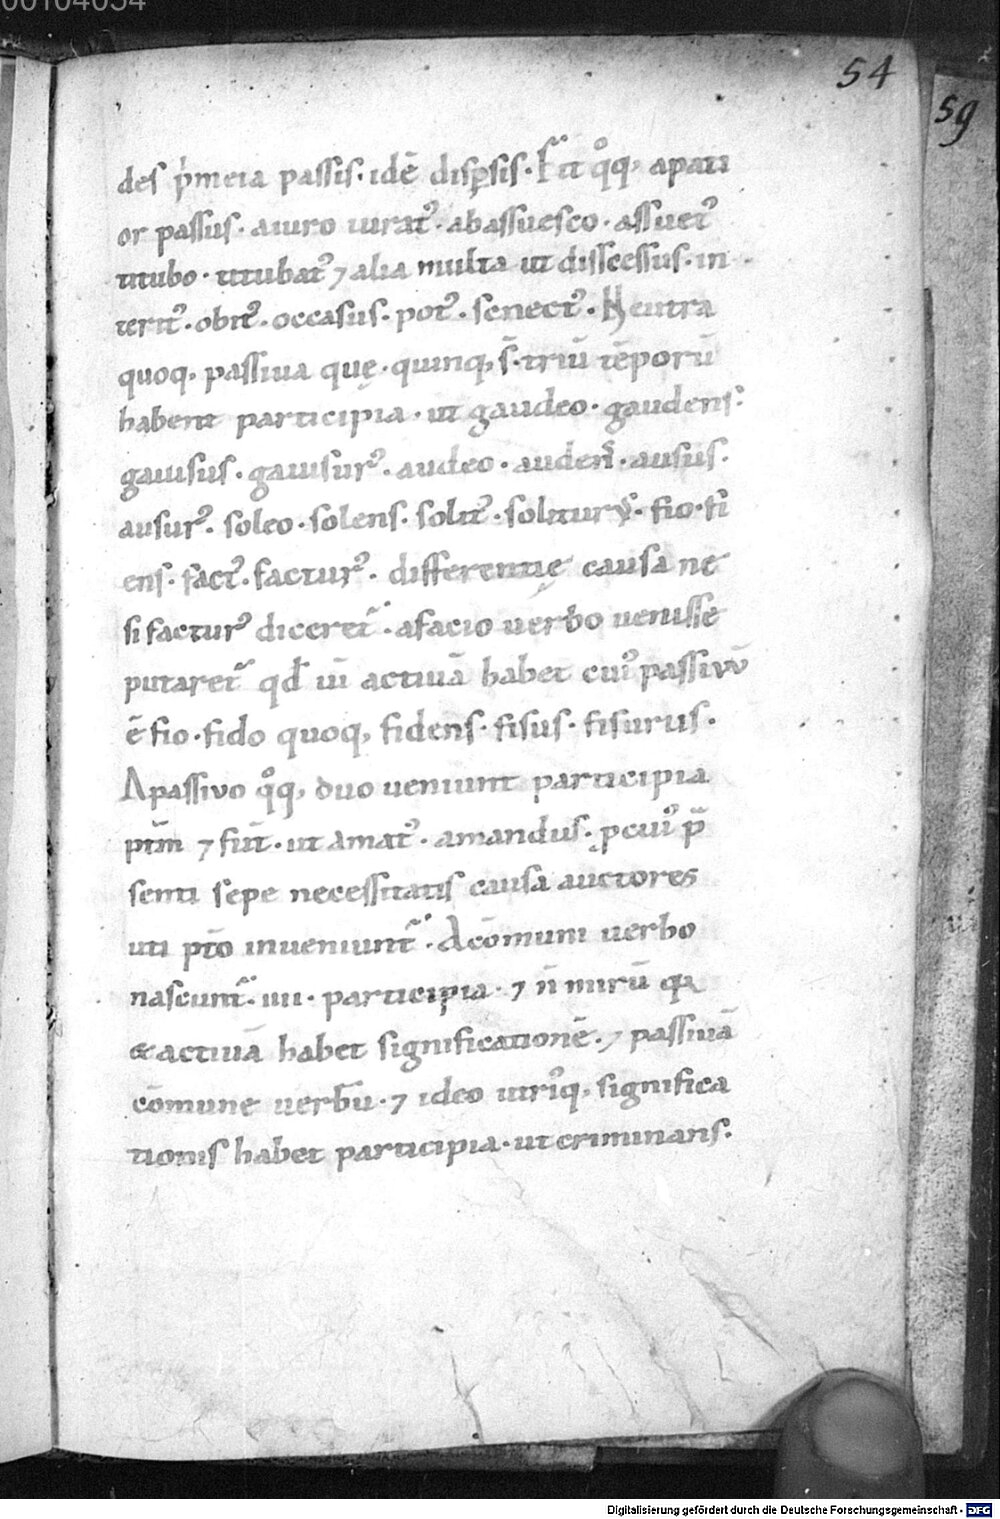 00104054
54
59
des p̾meia passis· idē disꝑsis· Fit qͦq, apati
or passus· aiuro iurat᾽· abassuesco· assuet᾽
titubo· titubat᾽ ⁊ alia multa ut disscessus· in
terit᾽· obit᾽· occasus· pot᾽· senect᾽· Neutra
quoq, passiua quę· quinq, s̄· triū tēporū
habent participia· ut gaudeo· gaudens·
gauisus· gauisur᾽· audeo· audens· ausus·
ausur᾽· soleo· solens· solit᾽· soliturus· fio· fi
ens· fact᾽· factur᾽· differentię causa ne
si factur᾽ diceret᷑· afacio uerbo uenisse
putaret᷑ qđ iū actiuā habet cui᾽ passivū
ē fio· fido quoq, fidens· fisus· fisurus·
Apassivo qͦq, duo ueniunt participia
ptm̄ ⁊ fut̄· ut amat᾽· amandus· ꝓcui᾽ p̄
senti sepe necessitatis causa auctores
uti ptō inueniunt᷑· Acōmuni uerbo
nascunt᷑· iiii· participia· ⁊ n̄ mirū qa
& actiuā habet significationē· ⁊ passiuā
cōmune uerbū· ⁊ ideo utriq, significa
tionis habet participia· ut criminans·
Digitalisierung gefördert durch die Deutsche Forschungsgemeinschaft - DFG